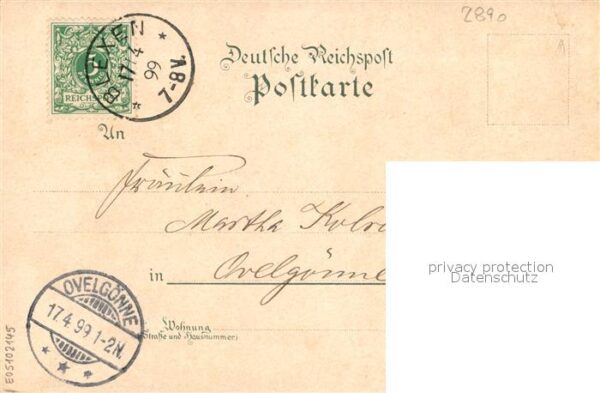 2890
BLEXEN
17/4
99
7-8V.
REICHSPOST
Deutsche Reichspost
Postkarte
An
Fräulein
Martha
in Ovelgönne
privacy protection
Datenschutz
OVELGÖNNE
17.4.99 1-2N.
Wohnung
(Straße und Hausnummer)
E05102145